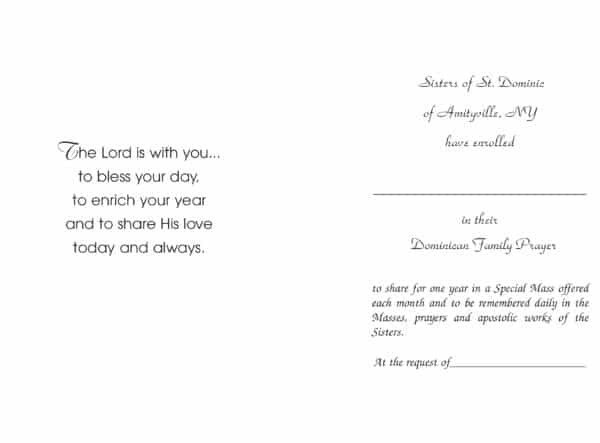 The Lord is with you...
to bless your day,
to enrich your year
and to share His love
today and always.
Sisters of St. Dominic
of Amityville, NY
have enrolled
in their
Dominican Family Prayer
to share for one year in a Special Mass offered
each month and to be remembered daily in the
Masses, prayers and apostolic works of the
Sisters.
At the request of